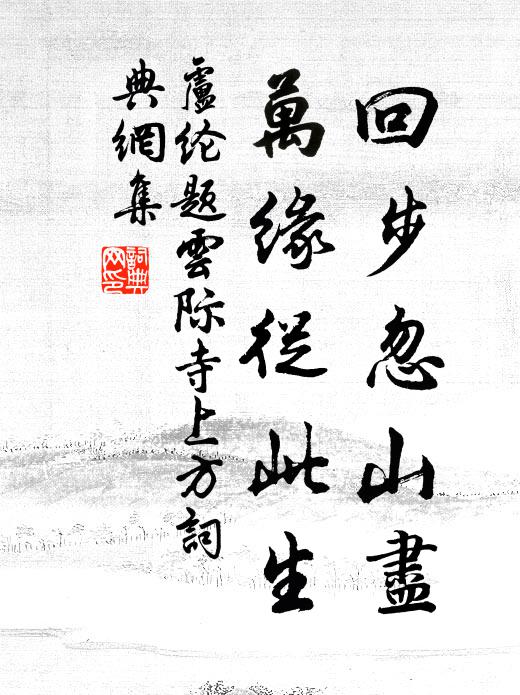 回步忽山盡
萬緣從此生
盧纶題雲际寺上方詞
典網集
詞典
网印